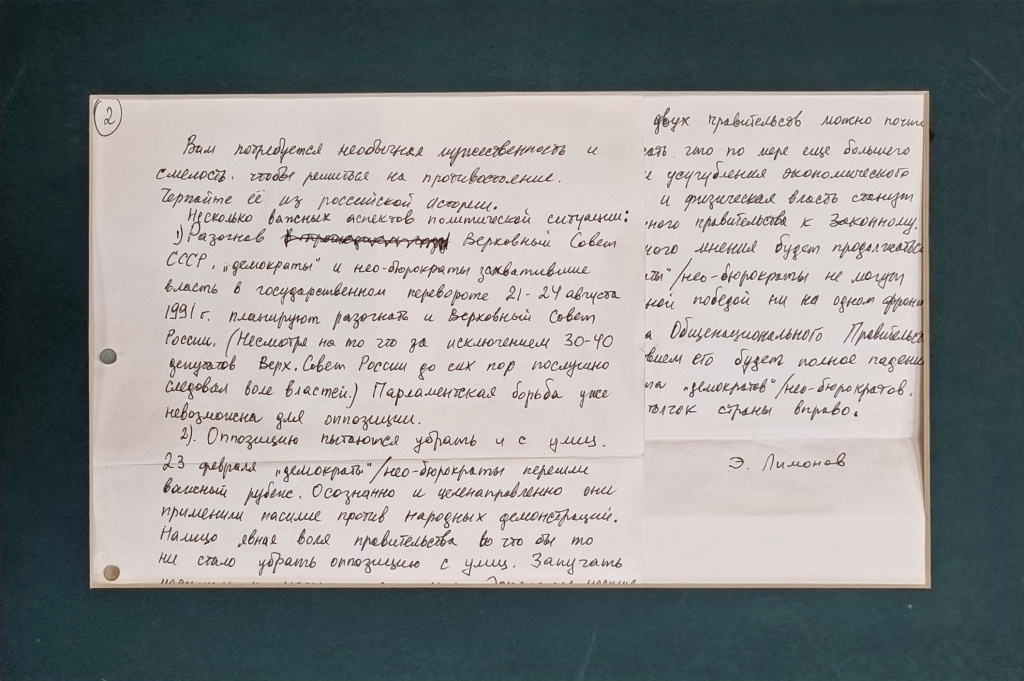 2
Вам потребуется необычная мужественность и
смелость, чтобы решиться на противостояние.
Черпайте её из российской истории.
Несколько важных аспектов политической ситуации:
1) Разогнав Верховный Совет
СССР, „демократы" и нео-бюрократы захватившие
власть в государственном перевороте 21-24 августа
1991 г. планируют разогнать и Верховный Совет
России. (Несмотря на то что за исключением 30-40
депутатов Верх. Совет России до сих пор послушно
следовал воле властей.) Парламентская борьба уже
невозможна для оппозиции.
2). Оппозицию пытаются убрать и с улиц.
23 февраля „демократы"/нео-бюрократы перешли
важный рубеж. Осознанно и целенаправленно они
применили насилие против народных демонстраций.
Налицо явная воля правительства во что бы то
ни стало убрать оппозицию с улиц. Запугать
двух правительств можно
что по мере еще большего
и усугубления экономического
и физическая власть станут
ного правительства к Законному.
ного мнения будет продолжаться
ты"/нео-бюрократы не могут
ной победой ни на одном
а Общенационального
вием его будет полное
та „демократов"/нео-бюрократов.
толчок страны вправо.
Э. Лимонов